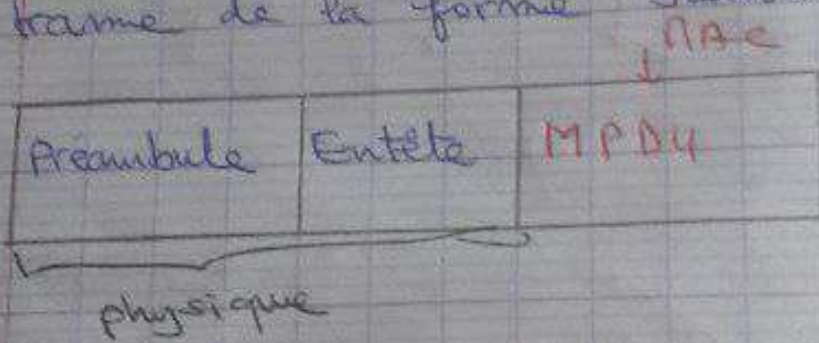 trame de la forme
MAC
Préambule Entête MPDU
physique